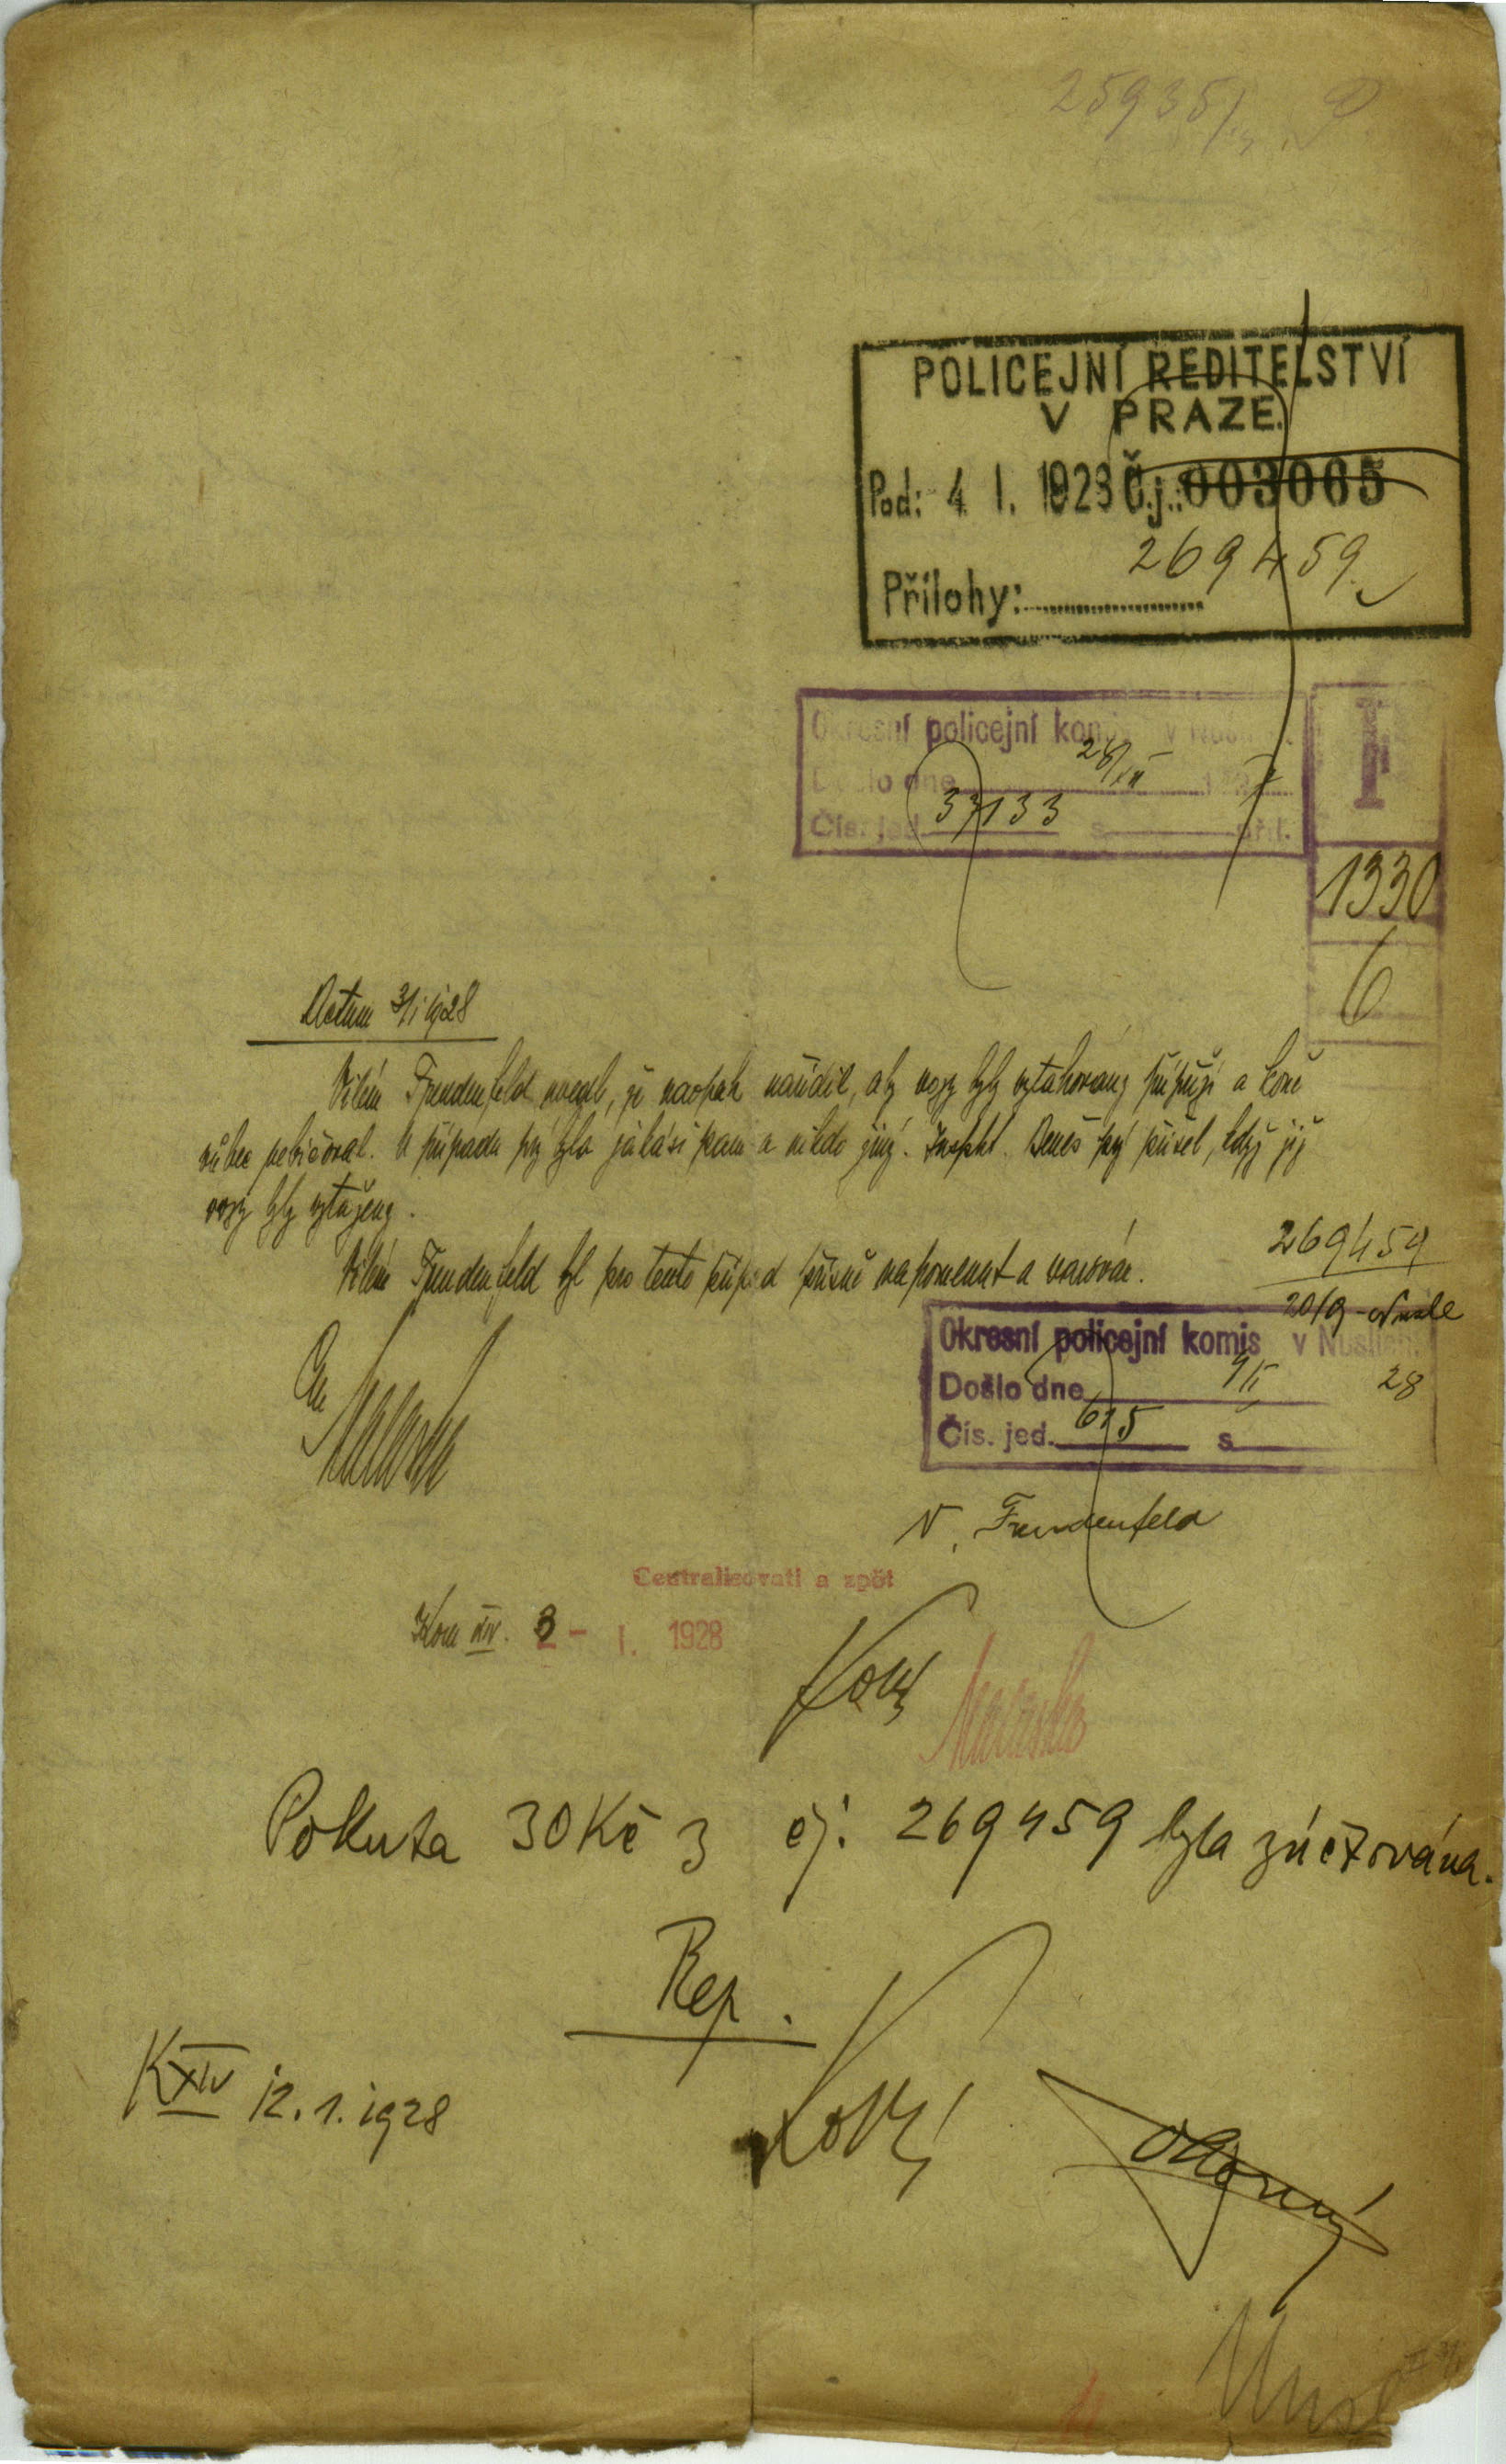 25935/
POLICEJNÍ ŘEDITELSTVÍ
V PRAZE.
Pod: 4 I. 1928 Č.j.: 003065
269459
Přílohy:
Okresní policejní komis v Nuslích
Došlo dne 28/XII
Čís. jed. 37133 s příl.
I
1330
6
Actum 3/I 1928
Vilém Freudenfeld uvedl, že naopak nařídil, aby vozy byly vytahovány přípřeží a koně
vůbec nebičoval. U případu prý byla jakási paní a nikdo jiný. Inspkt. Beneš prý přišel, když již
vozy byly vytaženy.
Vilém Freudenfeld byl pro tento případ přísně napomenut a varován.
269459
20/9 - Nusle
Okresní policejní komis v Nuslích
Došlo dne 9/I 28
Čís. jed. 615 s
V. Freudenfeld
Centralisovati a zpět
Kom XIV. 3 - I. 1928
Pokuta 30 Kč z čj. 269459 byla zúčtována.
Rep.
K XIV 12.1.1928